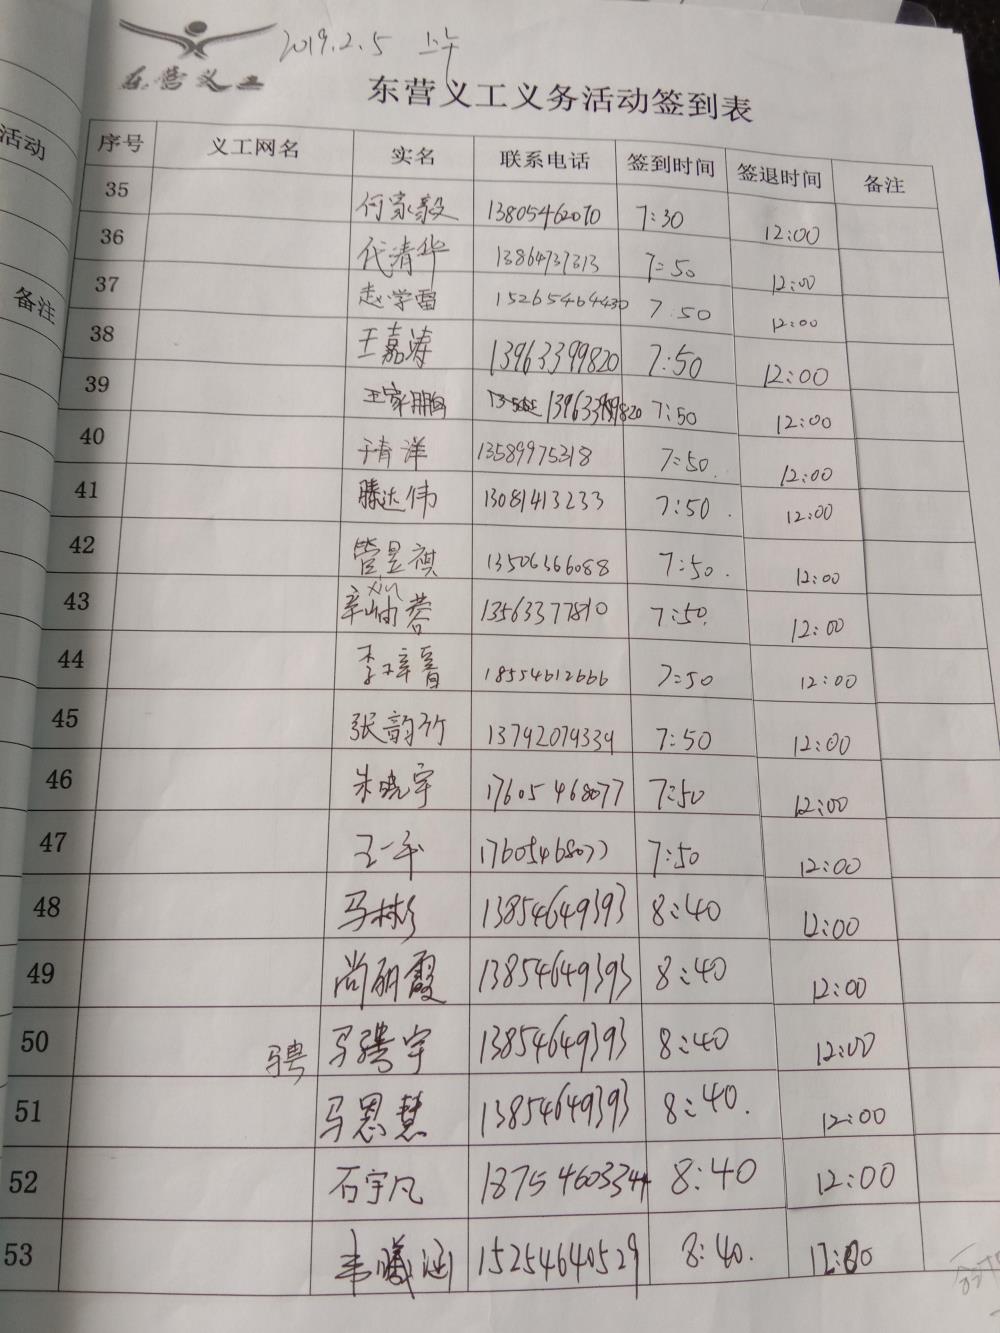 2019.2.5 上午
东营义工
东营义工义务活动签到表
活动
备注
序号 义工网名 实名 联系电话 签到时间 签退时间 备注
35 何家毅 13805462070 7:30 12:00
36 代清华 13864737313 7:50 12:00
37 赵学雷 15265464430 7:50 12:00
38 王嘉涛 13963399820 7:50 12:00
39 王家鹏 7:50 12:00
40 于青洋 13589975318 7:50 12:00
41 滕达伟 13081413233 7:50 12:00
42 管昱祺 13506366088 7:50 12:00
xin
43 辛 蓉 13563377810 7:50 12:00
44 李梓 18554612666 7:50 12:00
45 张韵竹 13792079339 7:50 12:00
46 朱晓宇 17605468077 7:50 12:00
47 王一平 17605468077 7:50 12:00
48 马彬 13854649393 8:40 12:00
49 尚丽霞 13854649393 8:40 12:00
50 骋 马骋宇 13854649393 8:40 12:00
51 马恩慧 13854649393 8:40 12:00
52 石宇凡 18754603344 8:40 12:00
53 韦曦涵 15254640529 8:40 12:00